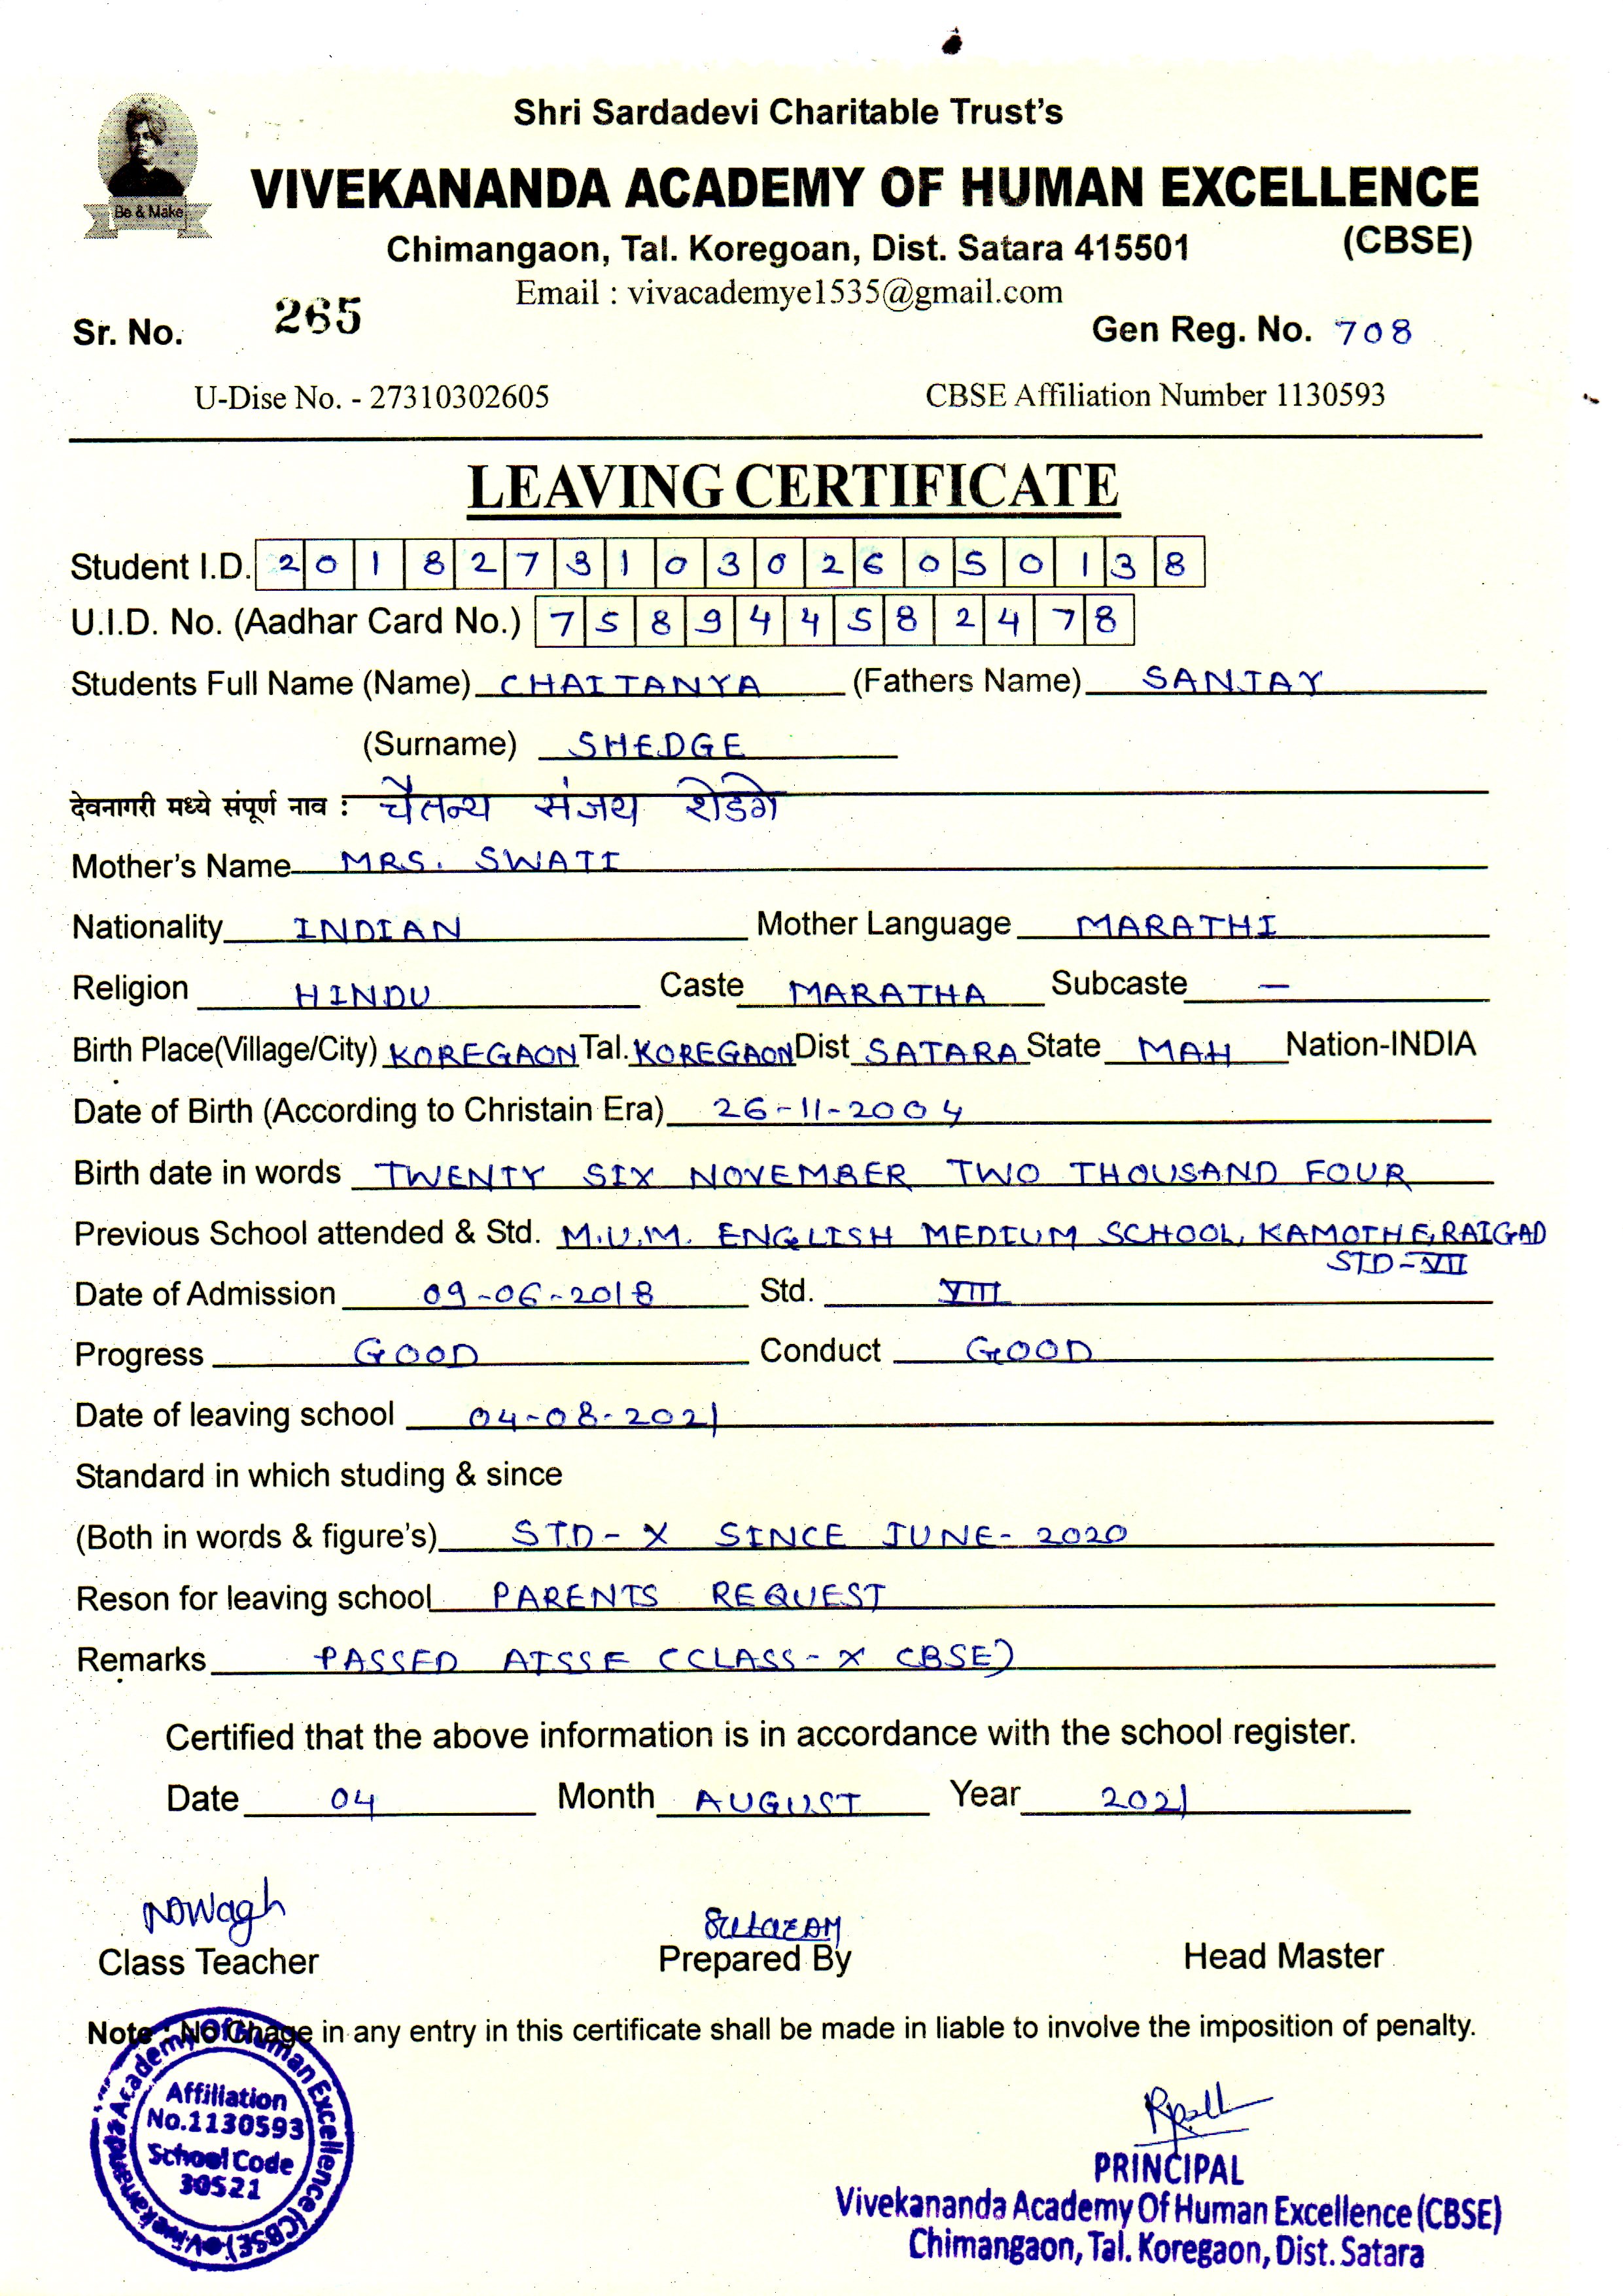 Shri Sardadevi Charitable Trust's
Be & Make
VIVEKANANDA ACADEMY OF HUMAN EXCELLENCE
Chimangaon, Tal. Koregoan, Dist. Satara 415501 (CBSE)
Email : vivacademye1535@gmail.com
Sr. No. 265 Gen Reg. No. 708
U-Dise No. - 27310302605 CBSE Affiliation Number 1130593
LEAVING CERTIFICATE
Student I.D. 2018273103026050138
U.I.D. No. (Aadhar Card No.) 758944582478
Students Full Name (Name) CHAITANYA (Fathers Name) SANJAY
(Surname) SHEDGE
देवनागरी मध्ये संपूर्ण नाव : चैतन्य संजय शेडगे
Mother's Name MRS. SWATI
Nationality INDIAN Mother Language MARATHI
Religion HINDU Caste MARATHA Subcaste —
Birth Place(Village/City) KOREGAON Tal. KOREGAON Dist SATARA State MAH Nation-INDIA
Date of Birth (According to Christain Era) 26-11-2004
Birth date in words TWENTY SIX NOVEMBER TWO THOUSAND FOUR
Previous School attended & Std. M.U.M. ENGLISH MEDIUM SCHOOL, KAMOTHE, RAIGAD
STD-VII
Date of Admission 09-06-2018 Std. VIII
Progress GOOD Conduct GOOD
Date of leaving school 04-08-2021
Standard in which studing & since
(Both in words & figure's) STD-X SINCE JUNE-2020
Reson for leaving school PARENTS REQUEST
Remarks PASSED AISSE (CLASS-X CBSE)
Certified that the above information is in accordance with the school register.
Date 04 Month AUGUST Year 2021
Class Teacher Prepared By Head Master
Note : No Chage in any entry in this certificate shall be made in liable to involve the imposition of penalty.
Vivekananda Academy Of Human Excellence (CBSE)
Affiliation
No.1130593
School Code
30521
PRINCIPAL
Vivekananda Academy Of Human Excellence (CBSE)
Chimangaon, Tal. Koregaon, Dist. Satara